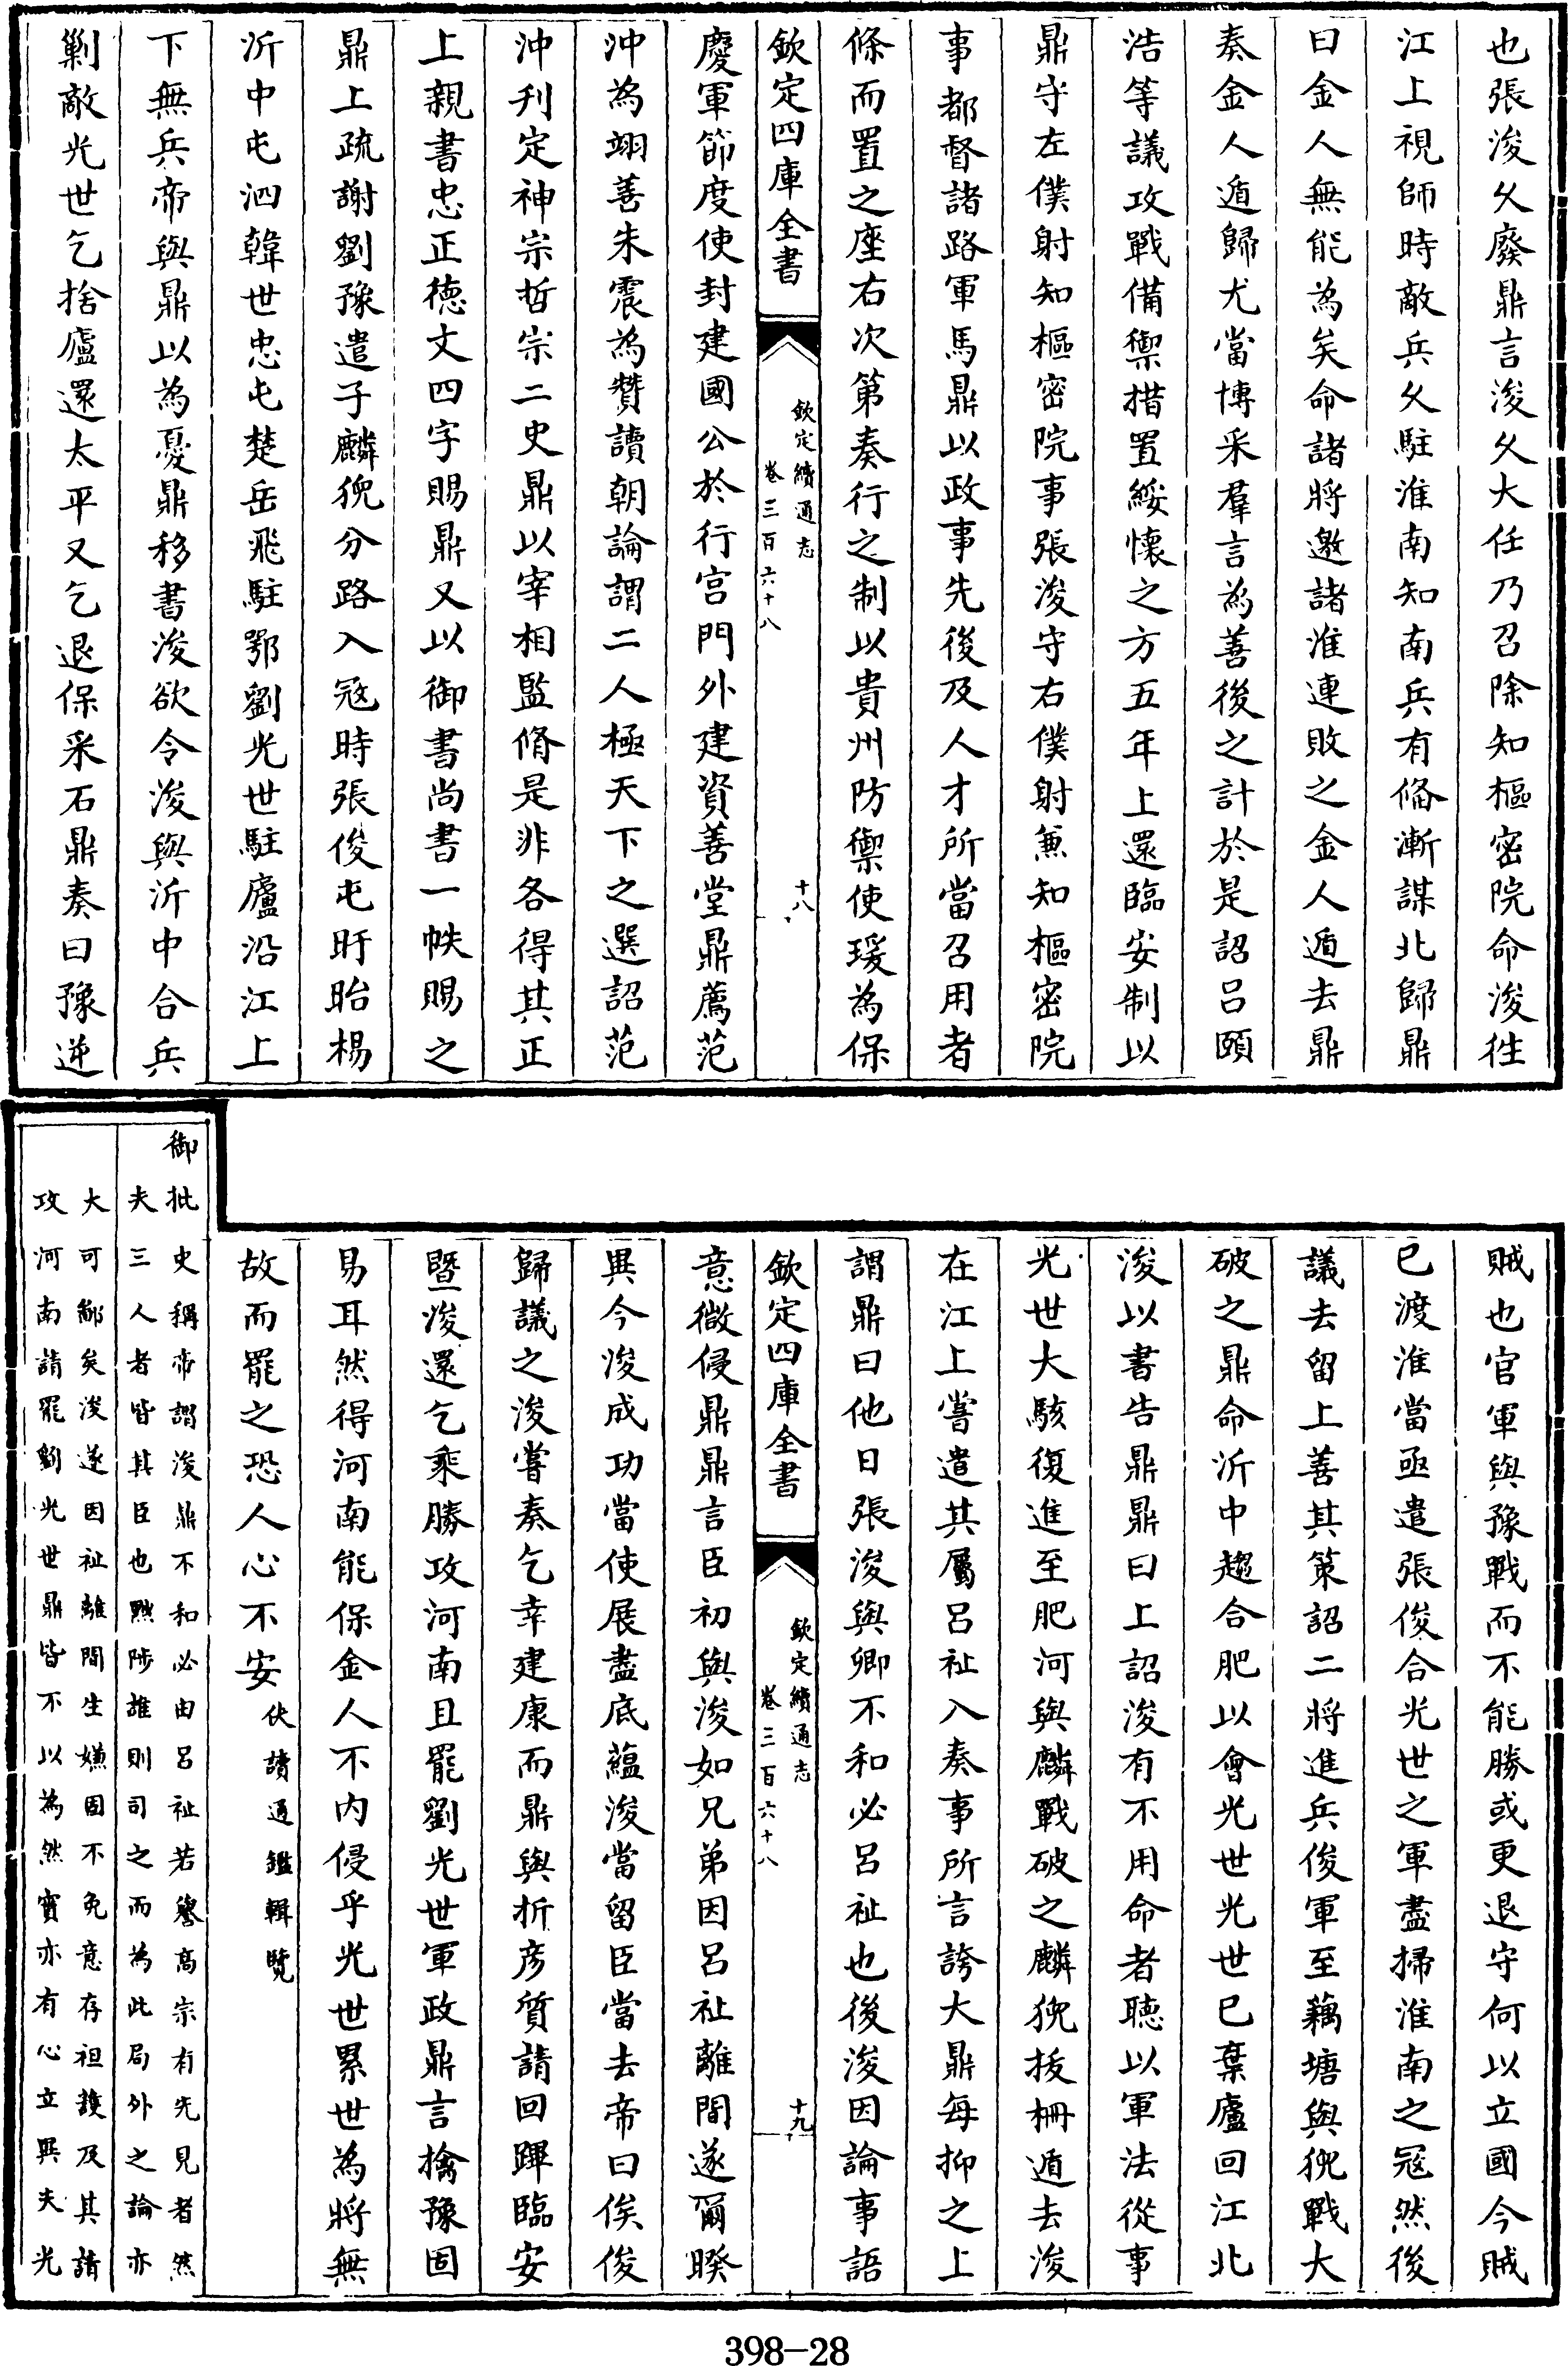 也張浚久廢鼎言浚久大任乃召除知樞密院命浚徃
江上視師時敵兵久駐淮南知南兵有偹漸謀北歸鼎
曰金人無能為矣命諸將邀諸淮連敗之金人遁去鼎
奏金人遁歸尤當博采羣言為善後之計於是詔吕頤
浩等議攻戰備禦措置綏懷之方五年上還臨安制以
鼎守左僕射知樞密院事張浚守右僕射兼知樞密院
事都督諸路軍馬鼎以政事先後及人才所當召用者
條而置之座右次第奏行之制以貴州防禦使瑗為保
欽定四庫全書
欽定續通志
卷三百六十八
十八
慶軍節度使封建國公於行宫門外建資善堂鼎薦范
沖為翊善朱震為贊讀朝論謂二人極天下之選詔范
沖刋定神宗哲宗二史鼎以宰相監脩是非各得其正
上親書忠正德文四字賜鼎又以御書尚書一帙賜之
鼎上疏謝劉豫遣子麟猊分路入冦時張俊屯盱眙楊
沂中屯泗韓世忠屯楚岳飛駐鄂劉光世駐廬沿江上
下無兵帝與鼎以為憂鼎移書浚欲令浚與沂中合兵
剿敵光世乞捨廬還太平又乞退保采石鼎奏曰豫逆
賊也官軍與豫戰而不能勝或更退守何以立國今賊
已渡淮當亟遣張俊合光世之軍盡掃淮南之冦然後
議去留上善其策詔二將進兵俊軍至藕塘與猊戰大
破之鼎命沂中趨合肥以會光世光世已棄廬回江北
浚以書告鼎鼎曰上詔浚有不用命者聴以軍法從事
光世大駭復進至肥河與麟戰破之麟猊拔柵遁去浚
在江上嘗遣其屬吕祉入奏事所言誇大鼎每抑之上
謂鼎曰他日張浚與卿不和必吕祉也後浚因論事語
欽定四庫全書
欽定續通志
卷三百六十八
十九
意微侵鼎鼎言臣初與浚如兄弟因吕祉離間遂爾暌
異今浚成功當使展盡底藴浚當留臣當去帝曰俟俊
歸議之浚嘗奏乞幸建康而鼎與折彦質請回蹕臨安
暨浚還乞乘勝攻河南且罷劉光世軍政鼎言擒豫固
易耳然得河南能保金人不内侵乎光世累世為將無
故而罷之恐人心不安伏讀通鑑輯覽
御批史稱帝謂浚鼎不和必由吕祉若譽高宗有先見者然
夫三人者皆其臣也黜陟誰則司之而為此局外之論亦
大可鄙矣浚遂因祉離間生嫌固不免意存袒護及其請
攻河南請罷劉光世鼎皆不以為然實亦有心立異夫光
398-28